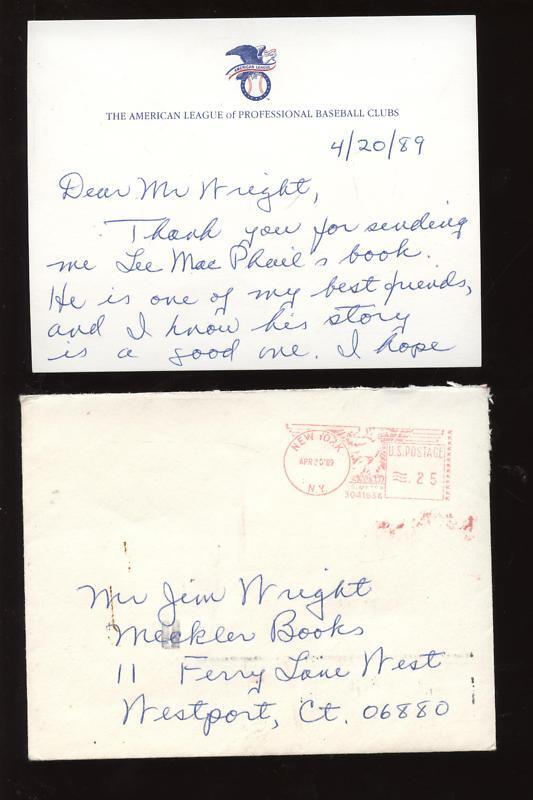 AMERICAN LEAGUE
THE AMERICAN LEAGUE of PROFESSIONAL BASEBALL CLUBS
4/20/89
Dear Mr Wright,
Thank you for sending
me Lee Mac Phail's book.
He is one of my best friends,
and I know his story
is a good one. I hope
NEW YORK
APR 20 '89
N.Y.
U.S. POSTAGE
.25
Mr Jim Wright
Meckler Books
11 Ferry Lane West
Westport, Ct. 06880